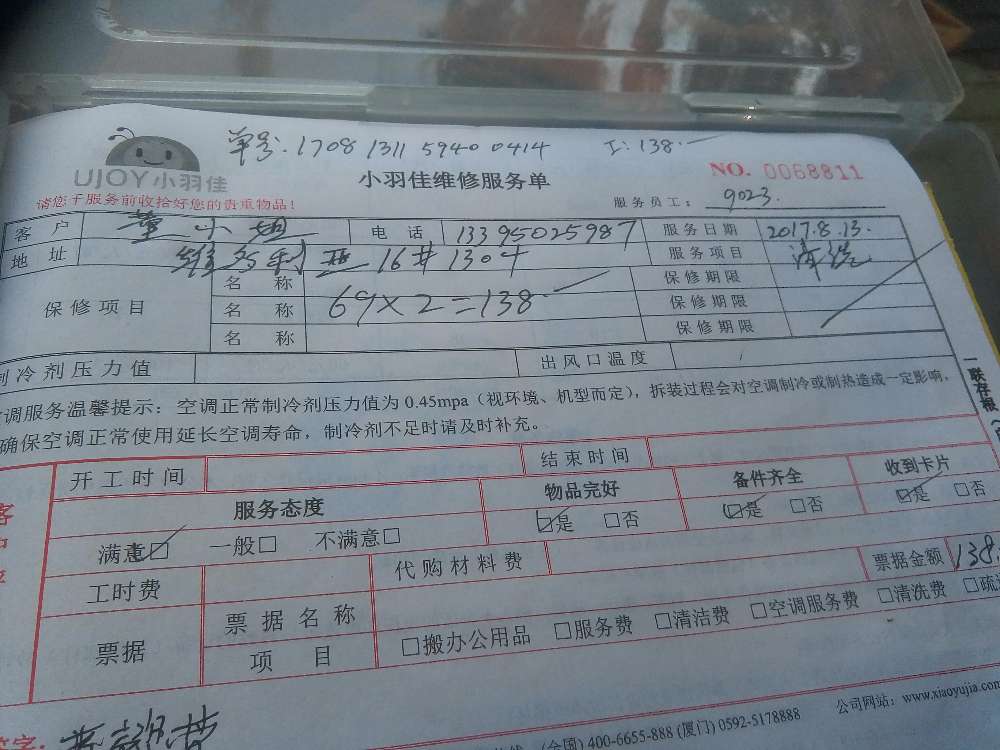 单号:1708 1311 5940 0414 工:138.
UJOY小羽佳
小羽佳维修服务单
NO. 0068811
请您于服务前收拾好您的贵重物品!
服务员工: 9023.
客 户 董小姐 电 话 13395025987 服务日期 2017.8.13.
地 址 维多利亚16#1304 服务项目 清洗
保修项目
名 称 保修期限
名 称 69×2=138. 保修期限
名 称 保修期限
制冷剂压力值 出风口温度
调服务温馨提示:空调正常制冷剂压力值为 0.45mpa(视环境、机型而定),拆装过程会对空调制冷或制热造成一定影响,
确保空调正常使用延长空调寿命,制冷剂不足时请及时补充。
一联存根
开工时间 结束时间
服务态度 物品完好 备件齐全 收到卡片
满意☑ 一般□ 不满意□ ☑是 □否 ☑是 □否 ☑是 □否
工时费 代购材料费 票据金额 138.
票据
票据名称 □搬办公用品 □服务费 □清洁费 □空调服务费 □清洗费
项 目
签字:
(全国) 400-6655-888 (厦门) 0592-5178888 公司网站:www.xiaoyujia.com